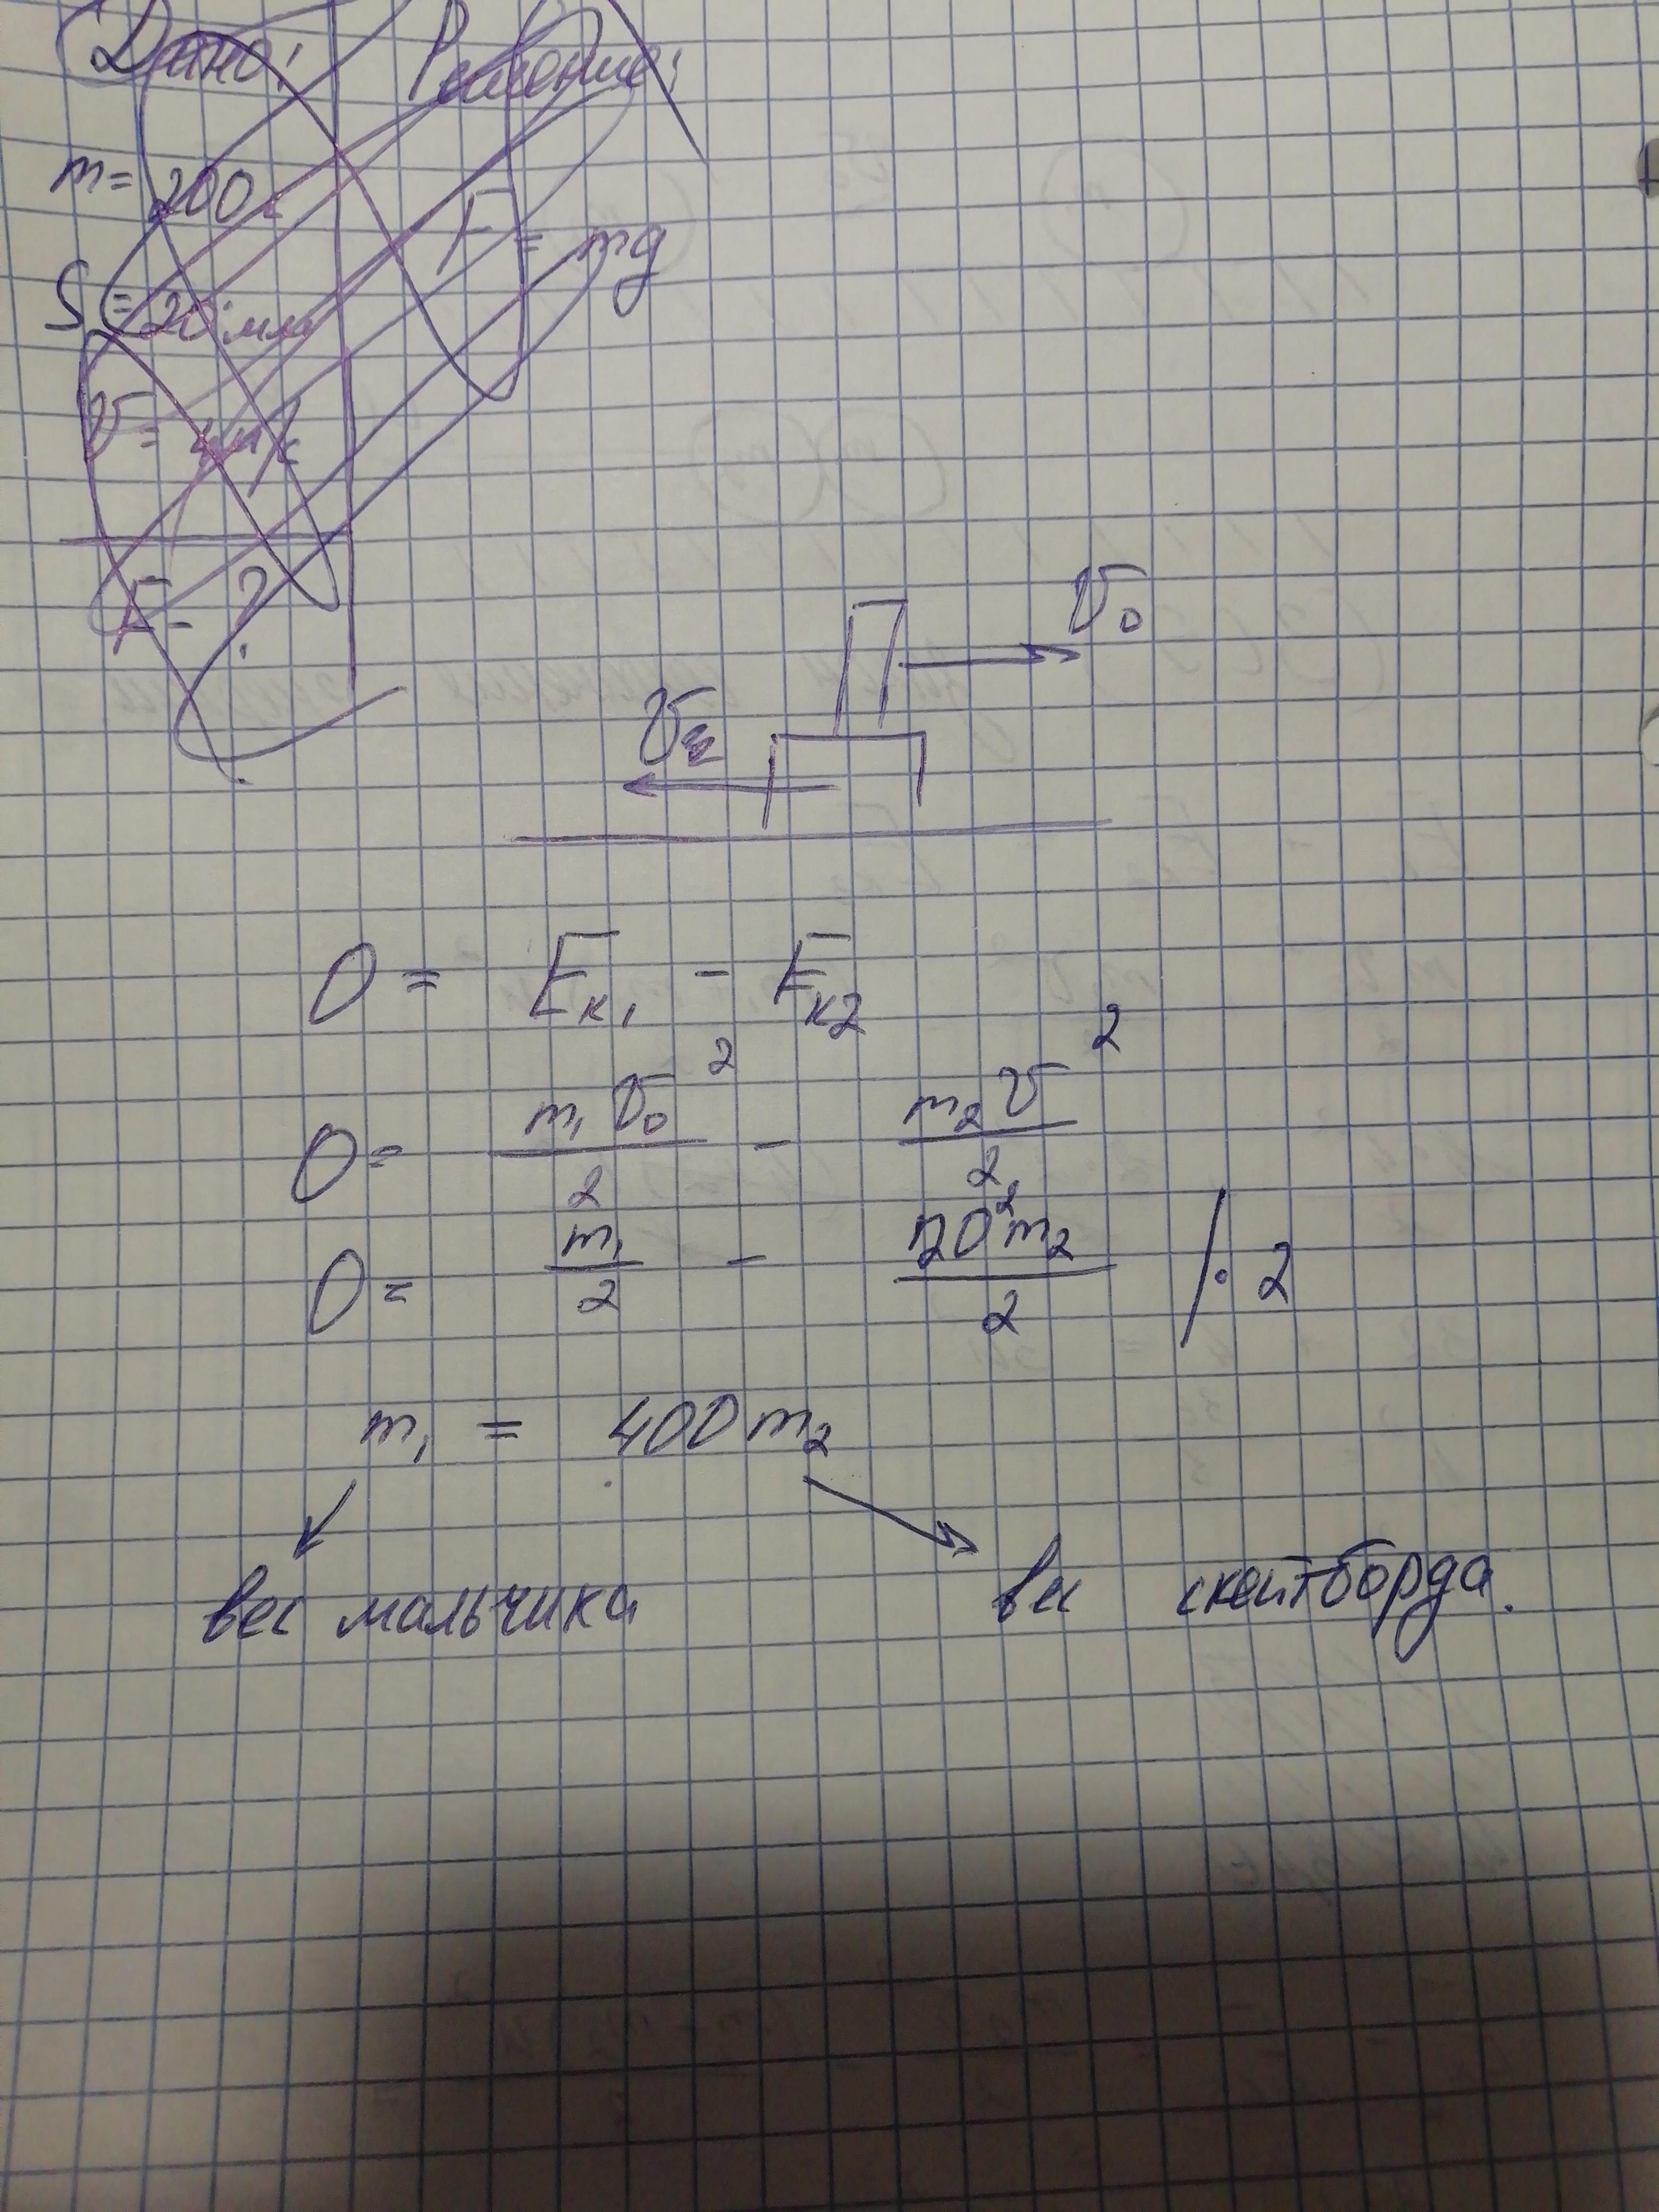 Дано: Решение:
m = 200 г
F = mg
S = 20
v = 4 м/с
F - ?
v₀
v
0 = Eк₁ - Eк2
0 = m₁v₀²/2 - m₂v²/2
0 = m₁/2 - 20²m₂/2 /· 2
m₁ = 400m₂
вес мальчика вес скейтборда.